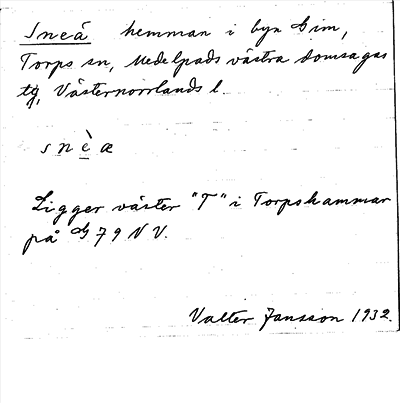 Sneå hemman i byn Gim,
Torps sn, Medelpads västra domsagas
tg, Västernorrlands l.
snèæ
Ligger väster "T" i Torpshammar
på G 79 NV.
Valter Jansson 1932.